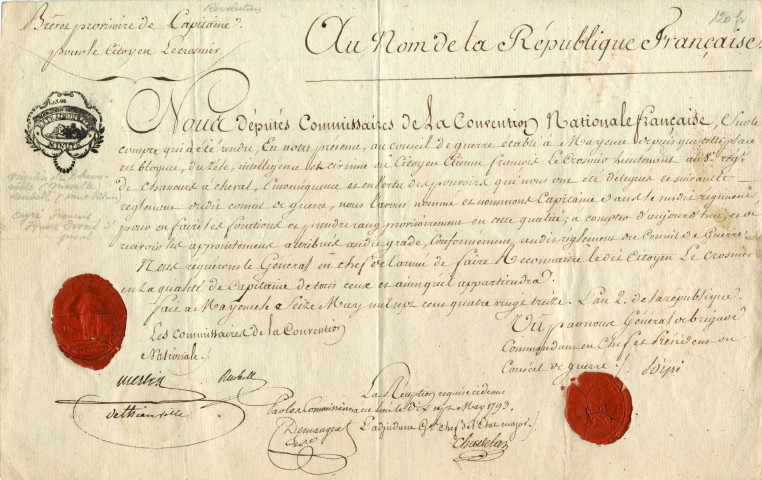 Brevet provisoire de Capitaine
pour le Citoyen Lecrosnier.
Revolution
120 fr
Au Nom de la République Française.
Nous députés Commissaires de La Convention Nationale francaise, Sur le
compte qui a été rendu, En notre présence, au Conseil de guerre établi a Mayence depuis que cette place
est bloquée, du Zèle, intelligence et civisme du Citoyen françois Le Crosnier lieutenant au 8e regt
de Chasseurs à cheval, En consequence et en vertu des pouvoirs qui nous ont été délégués et suivant le
reglement dudit conseil de guerre, nous l'avons nommé et nommons Capitaine dans le susdit regiment,
pour en faire les fonctions et prendre rang provisoirement en cette qualité, a compter d'aujourd'hui, et
recevoir les appointements attribués audit grade, Conformement audit reglement du Conseil de Guerre.
Nous requérons le Général en chef de l'armée de faire Reconnaitre ledit Citoyen Le Crosnier
en la qualité de Capitaine de tous ceux et ainsi qu'il appartiendra.
fait a Mayence le Seize May mil sept cens quatre vingt treize. L'an 2. de la république.
Les Commissaires de la Convention
Nationale.
merlin Reubell
de thionville
Vu par nous Général de brigade
Commandant en Chef et Président du
Conseil de guerre
La Réception requise ci dessus
a eu lieu le dix sept May 1793.
L'adjudant Gal chef de l'Etat major
Par les Commissaires
Demangeat
Secre